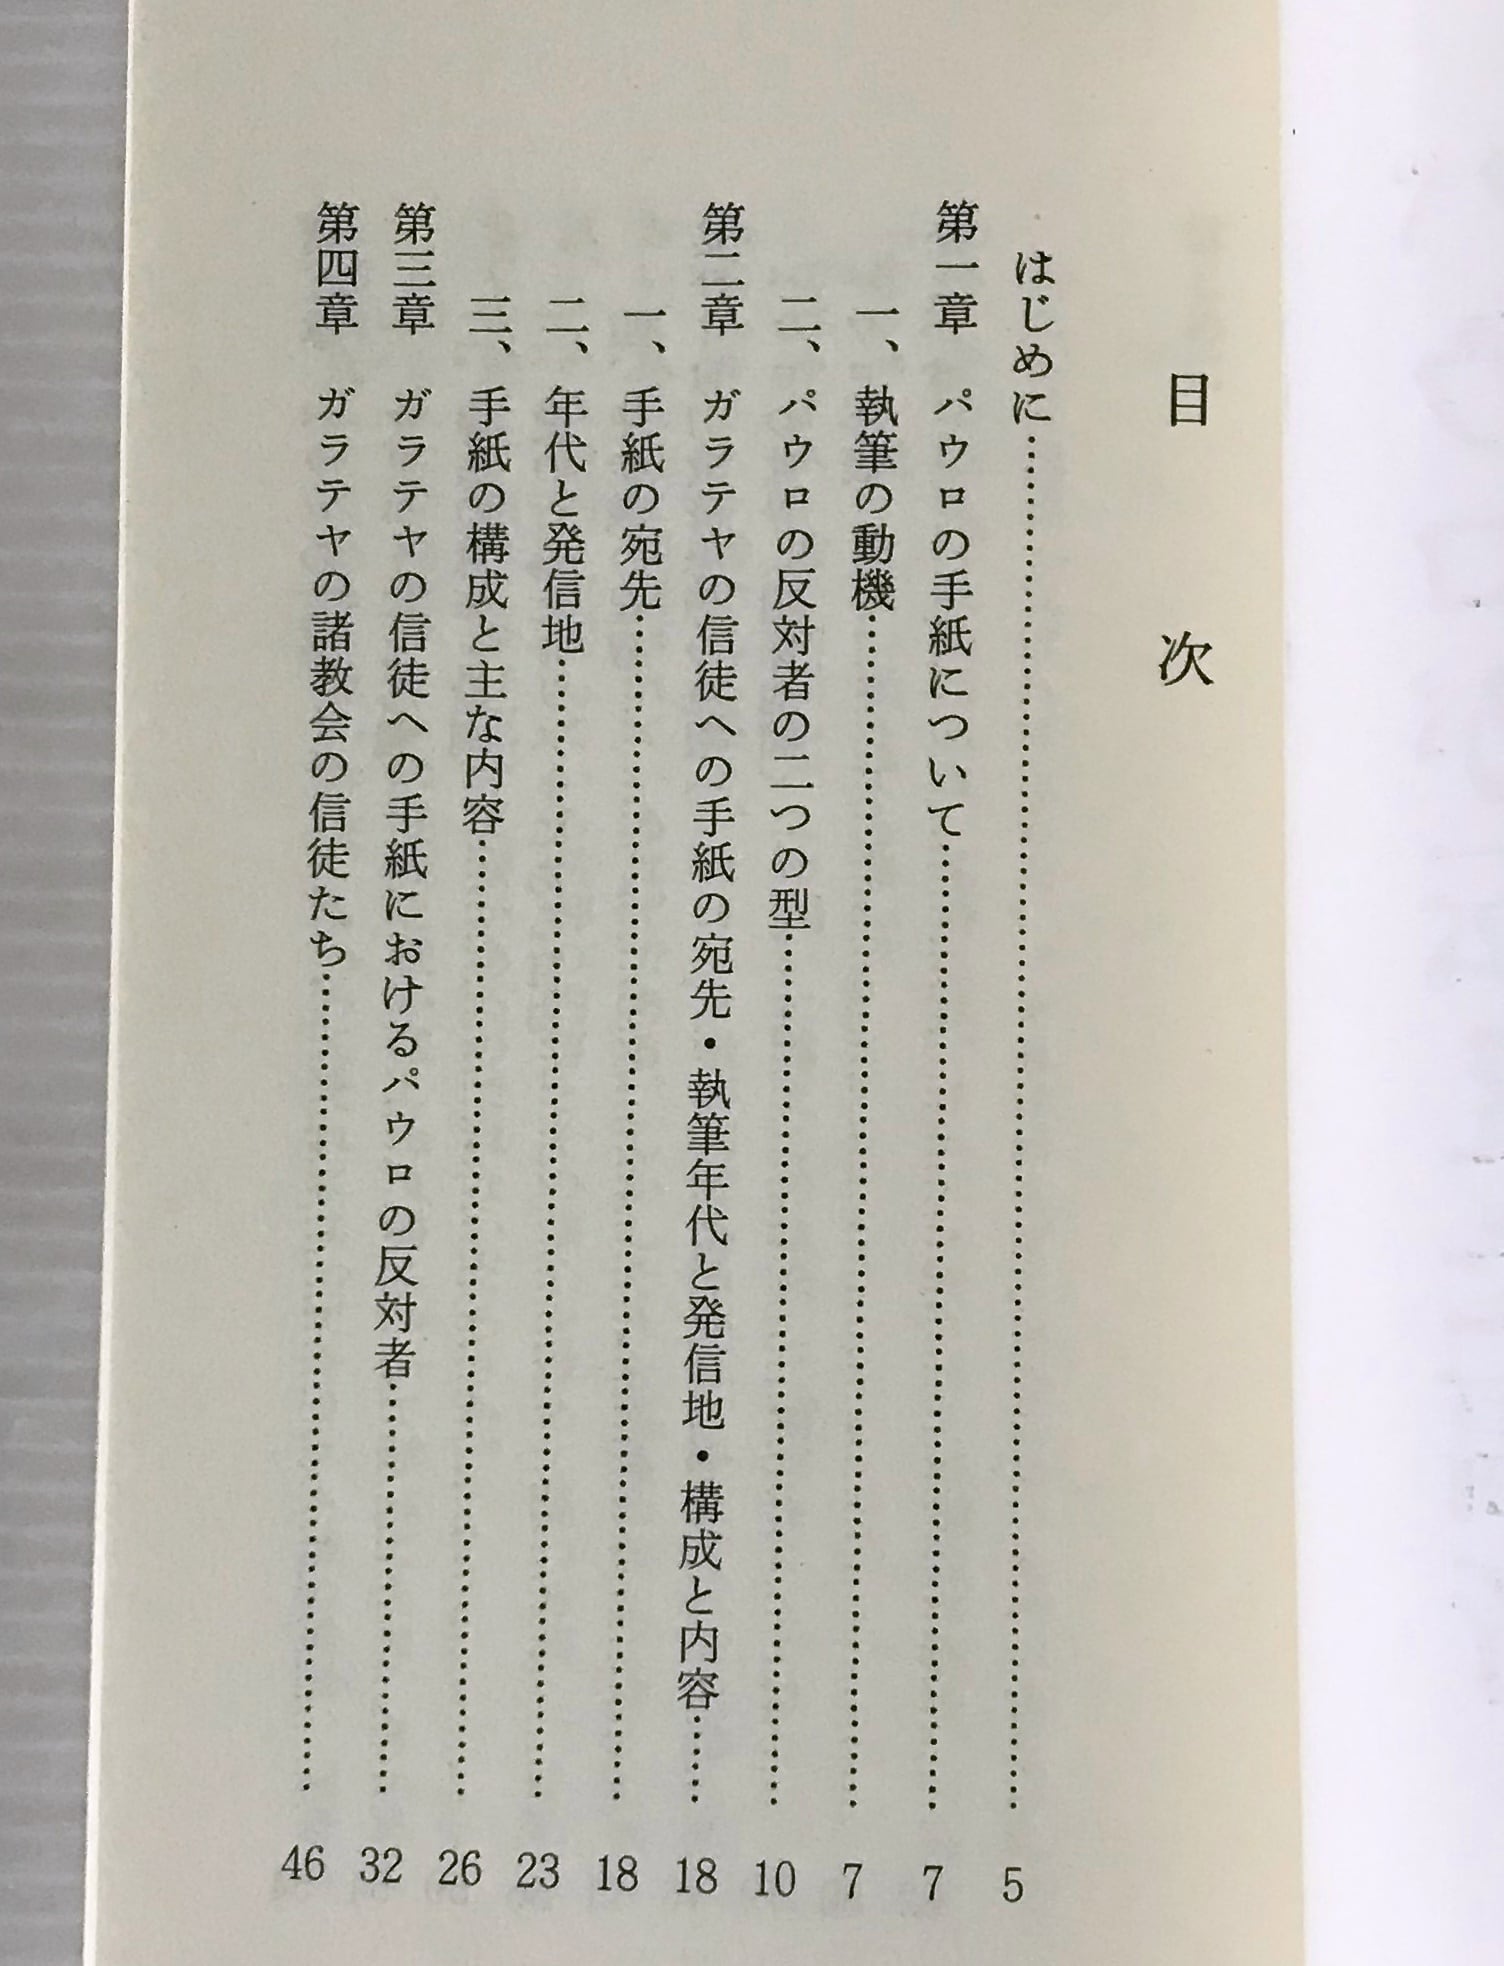 目次
はじめに……………………………………………………5
第一章 パウロの手紙について……………………………………7
一、執筆の動機……………………………………………7
二、パウロの反対者の二つの型………………………………10
第二章 ガラテヤの信徒への手紙の宛先・執筆年代と発信地・構成と内容……18
一、手紙の宛先……………………………………………18
二、年代と発信地…………………………………………23
三、手紙の構成と主な内容……………………………………26
第三章 ガラテヤの信徒への手紙におけるパウロの反対者………………32
第四章 ガラテヤの諸教会の信徒たち………………………………46